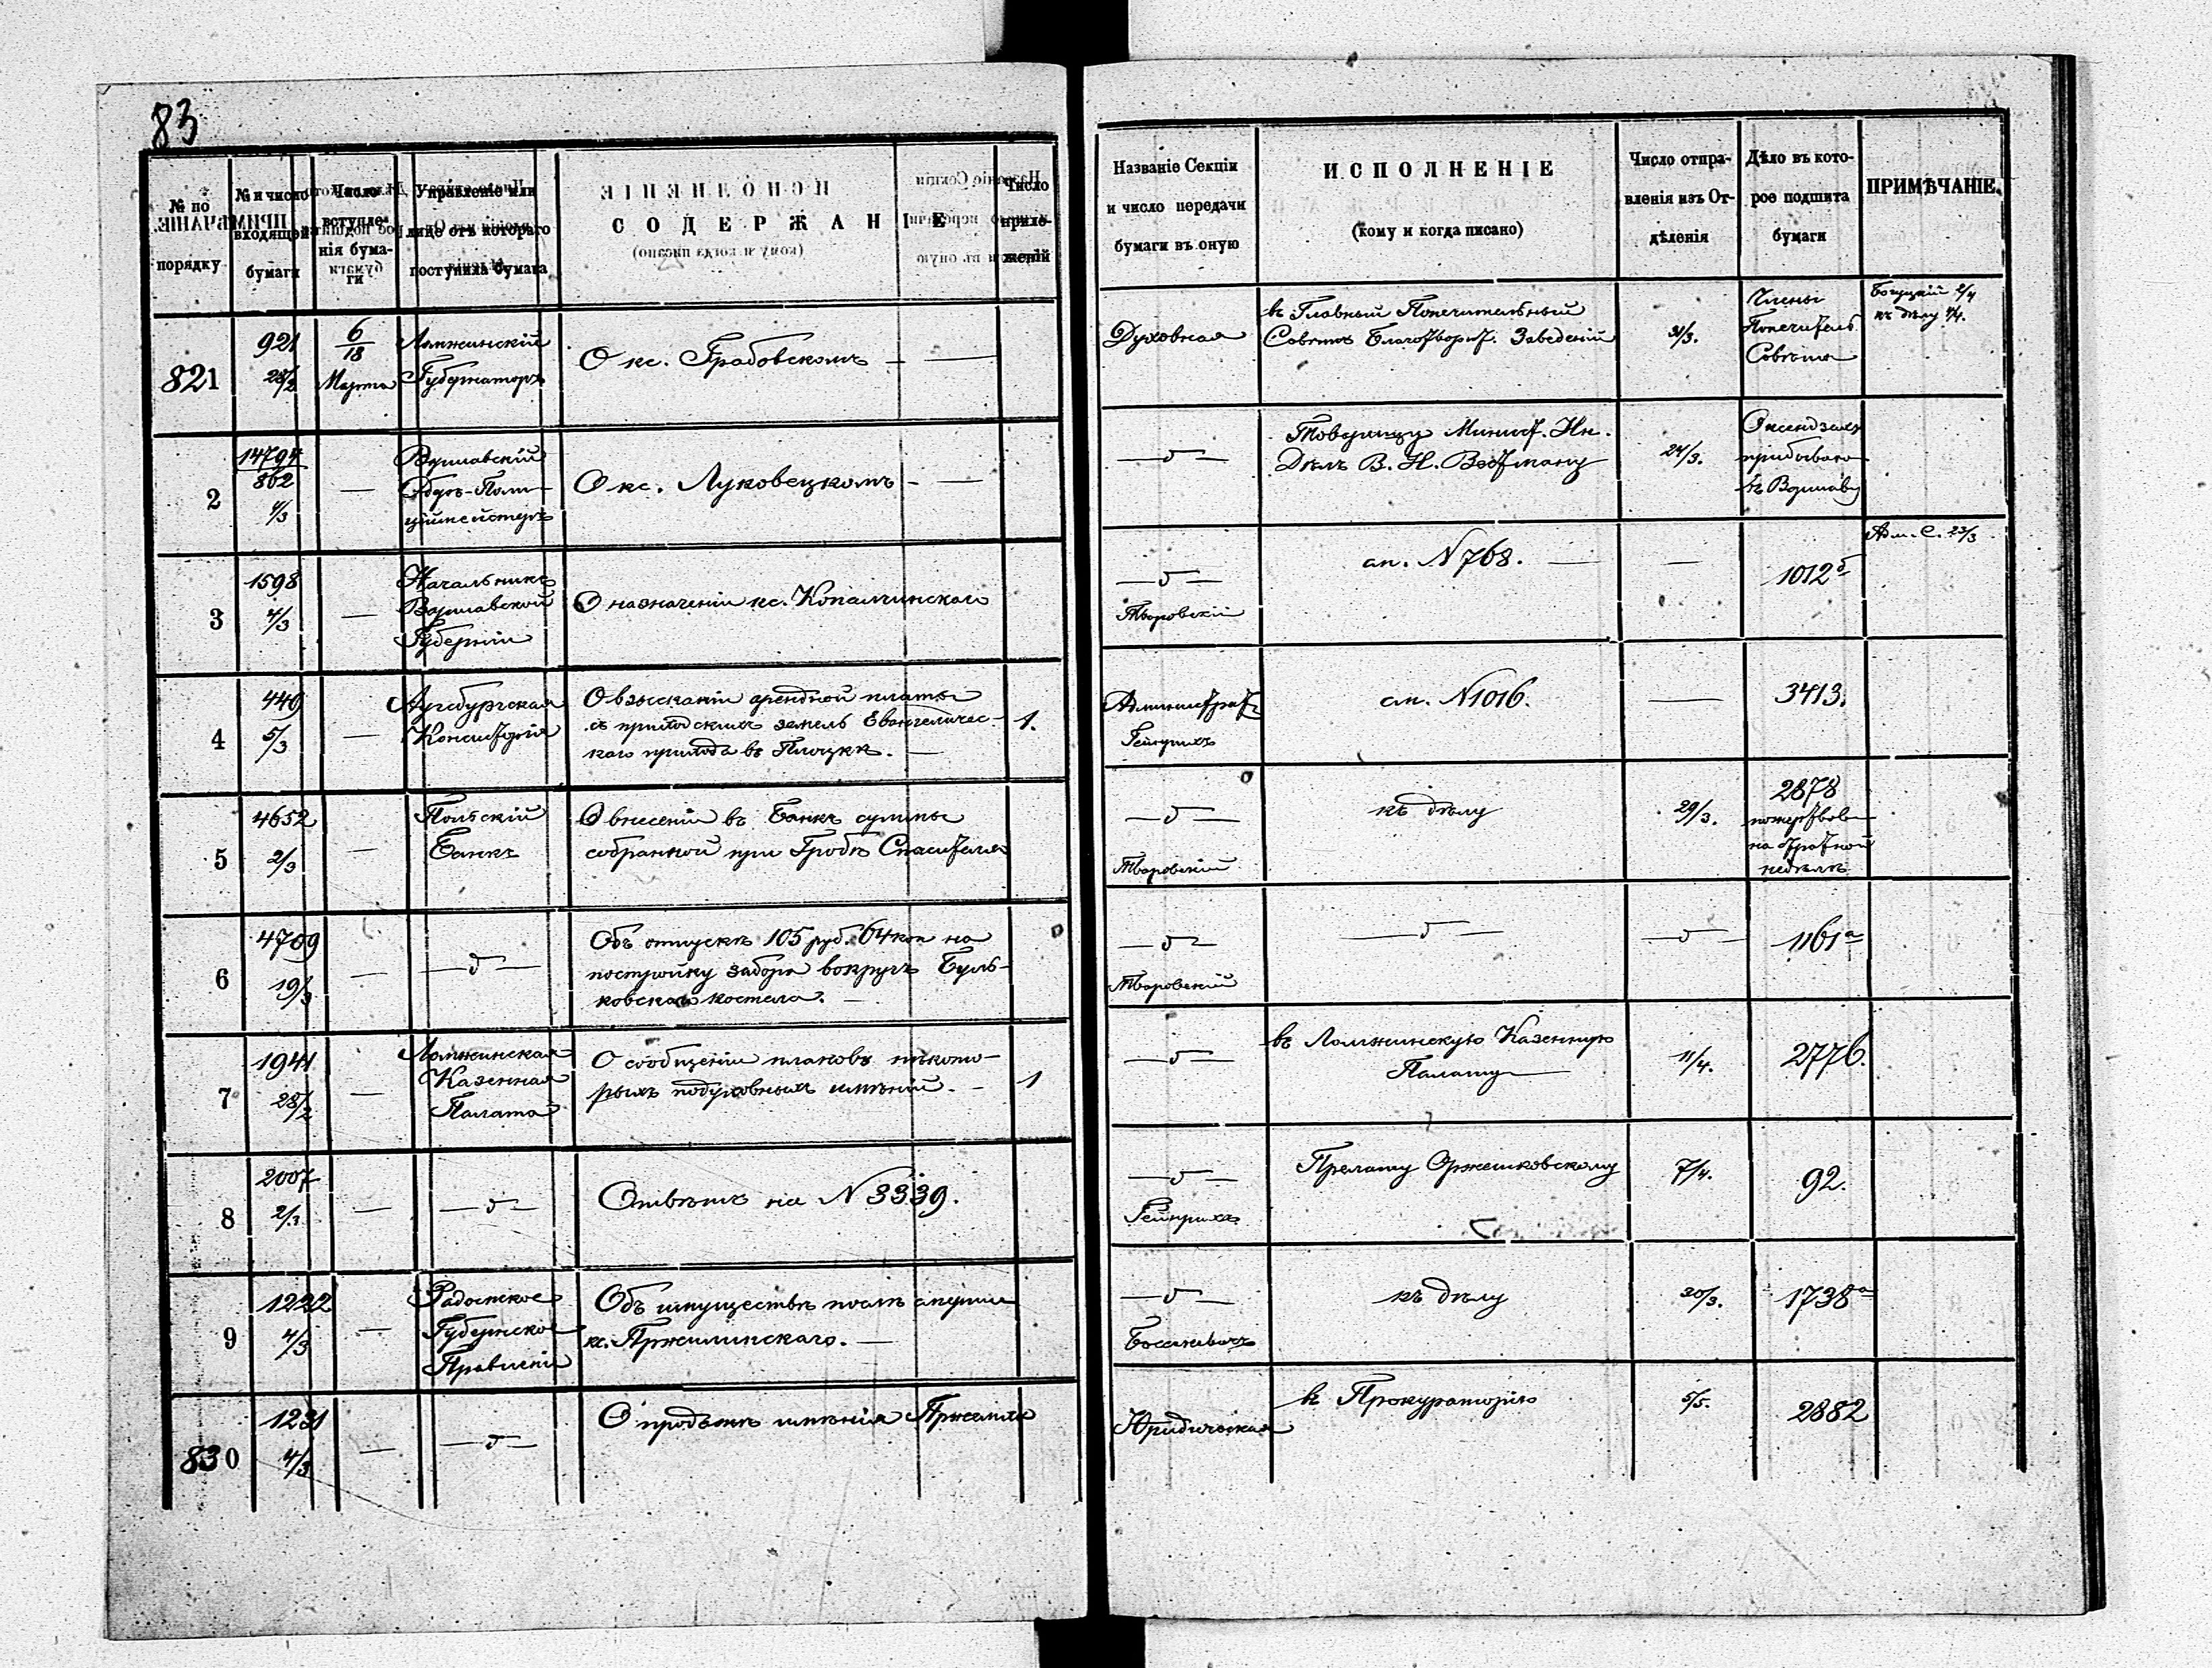 83
№ по порядку
№ и число входящей бумаги
Число вступле-
нія бума-
ги
Управленіе или
лице отъ котораго
поступила бумага
СОДЕРЖАНІЕ
Число
прило-
женій
Названіе Секціи
и число передачи
бумаги въ оную
ИСПОЛНЕНІЕ
(кому и когда писано)
Число отпра-
вленія изъ От-
дѣленія
Дѣло въ кото-
рое подшита
бумаги
ПРИМѢЧАНІЕ.
821
921
28/2
6/18
Марта
Ломжинскій
Губернаторъ
О кс. Грабовскомъ —
Духовная
въ Главный Попечительный
Совѣтъ Благотворит. Заведеній
31/3.
Члены
Попечитель
Совѣта
2/4
къ дѣлу
2
14794
862
4/3
—
Варшавскій
Оберъ-Поли-
ціймейстеръ
О кс. Луковецкомъ - —
—„—
Товарищу Минист. Вн.
Дѣлъ
24/3.
Ксендзахъ
въ Варшаву
3
1598
4/3
—
Начальникъ
Варшавской
Губерніи
О назначеніи кс.
—„—
Творовскій
сп. N 768. —
—
1012б
Адм. С. 23/3
4
449
5/3
—
Аугсбургская
Консисторія
О взысканіи арендной платы
съ приходскихъ земель Евангеличес-
каго прихода въ Плоцкѣ. —
1.
Администрат.
Гейнрихъ
сп. N 1016.
—
3413.
5
4652
2/3
—
Польскій
Банкъ
О внесеніи въ Банкъ суммы
собранной при Гробѣ Спасителя
—„—
Творовскій
къ дѣлу
29/3.
2878
на страстной
недѣлѣ
6
4709
19/3
—
—„—
Объ отпускѣ 105 руб. 64 коп на
постройку забора вокругъ Буль-
ковскаго костела. —
—„—
Творовскій
—„—
—„—
1161а
7
1941
28/2
—
Ломжинская
Казенная
Палата
О сообщеніи плановъ нѣкото-
рыхъ подуховныхъ имѣній. —
1
—„—
въ Ломжинскую Казенную
Палату
11/4.
2776.
8
2007
2/3
—
—„—
Отвѣтъ на N 3339.
—„—
Гейнрихъ
Прелату Оржешковскому
7/4.
92.
9
1222
4/3
—
Радомское
Губернское
Правленіе
Объ имуществѣ послѣ смерти
кс. —
—„—
къ дѣлу
20/3.
1738а
830
1231
4/3
—
—„—
О продажѣ имѣнія
Юридическая
въ Прокураторію
5/5.
2882